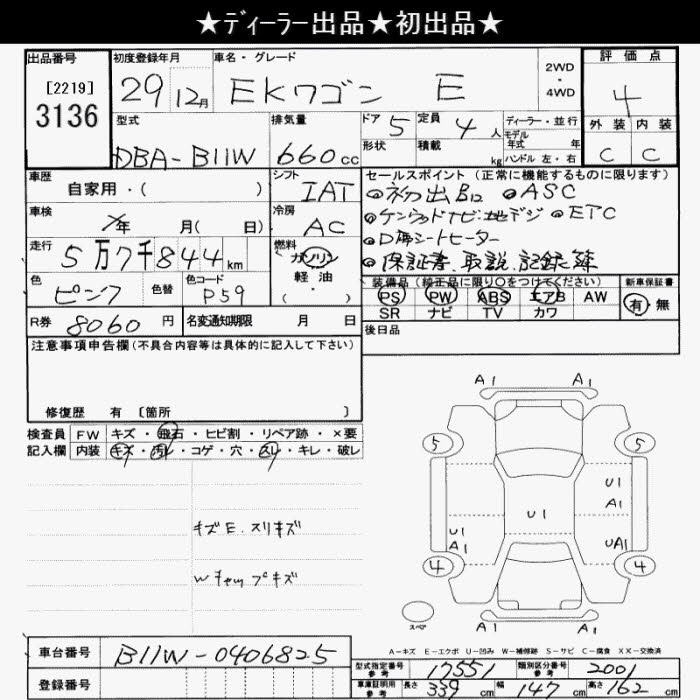 ★ディーラー出品★初出品★
出品番号 初度登録年月 車名・グレード 評価点
[2219] 29 12月 EKワゴン E 2WD・4WD 4
3136
型式 排気量 ドア 5 定員 4 人 ディーラー・並行 外装 内装
モデル年式 年
DBA-B11W 660cc 形状 積載 kg ハンドル 左・右 C C
車歴 シフト セールスポイント (正常に機能するものに限ります)
自家用・( ) IAT ◎初出品 ◎ASC
車検 年 月( 日) 冷房 AC ◎ケンウッドナビ・地デジ ◎ETC
走行 5万7千844km 燃料 ガソリン ◎D席シートヒーター
軽・油 ◎保証書 取説 記録簿
色 ピンク 色替 色コード P59 ( ) 装備品 (純正品に限り○をつけてください) 新車保証書
PS PW ABS エアB AW 有 無
R券 8060 円 名変通知期限 月 日 SR ナビ TV カワ
注意事項申告欄(不具合内容等は具体的に記入して下さい) 後日品
修復歴 有 〔箇所 〕
検査員 FW キズ・飛石・ヒビ割・リペア跡・×要
記入欄 内装 キズ・汚レ・コゲ・穴・スレ・キレ・破レ
A1 A1
5 5
U1
A1
U1
U1 A1
UA1
キズE.スリキズ
4 4
スペア
A1 A1
A-キズ E-エクボ U-凹み W-補修跡 S-サビ C-腐食 XX-交換済
車台番号 B11W-0406825
型式指定番号 参考 17551 類別区分番号 参考 2001
登録番号 車庫証明用 参考 長さ 339 cm 幅 147 cm 高さ 162 cm